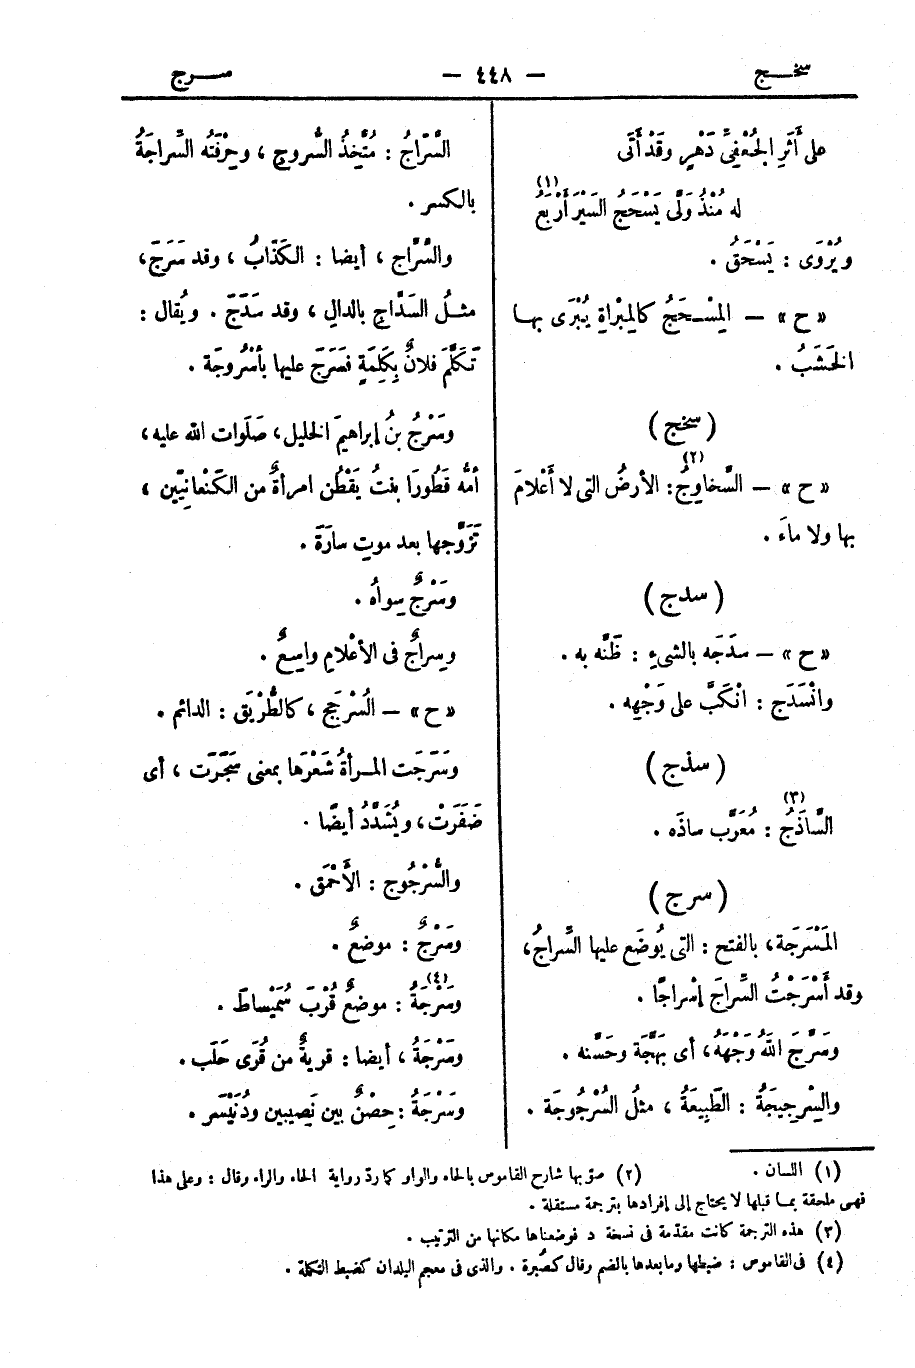 سخج
— ٤٤٨ —
سرج
على أَثَرِ الجُعْفِىِّ دَهْرٍ وقَدْ أَتَى
له مُنْذُ وَلَّى يَسْحَجُ السَيْرَ أَرْبَعُ (١)
ويُرْوَى : يَسْحَقُ .
« ح » — المِسْحَجُ كالمِبْراةِ يُبْرَى بها
الخَشَبُ .
( سخج )
« ح » — السَّخاوِجُ (٢) : الأرضُ التى لا أَعْلامَ
بها ولا ماءَ .
( سدج )
« ح » — سدَجَه بالشىءِ : ظَنَّه به .
وانْسَدَج : انْكَبَّ على وَجْهِه .
( سذج )
السَّاذَجُ (٣) : مُعَرَّب ساذَه .
( سرج )
المَسْرَجَة، بالفتح : التى يُوضَع عليها السِّراجُ،
وقد أَسْرَجْتُ السِّراجَ إِسْراجًا .
وسَرَّجَ اللهُ وَجْهَهُ، أى بَهَّجَهَ وحَسَّنه .
والسِرْجِيجَةُ : الطَّبِيعَةُ ، مثلُ السُرْجُوجَة .
السَّرّاجُ : مُتَّخِذُ السُّروجِ ، وحِرْفَتُه السِّراجَةُ
بالكسر .
والسَّرَّاج ، أيضا : الكَذّابُ ، وقد سَرَجَ،
مثلُ السَدَّاجِ بالدالِ ، وقد سَدَّجَ . ويُقال :
تَكَلَّمَ فلانٌ بِكَلِمَةٍ فسَرَجَ عليها بأُسْرُوجَة .
وسَرْجُ بنُ إبراهيمَ الخليل، صَلَوات الله عليه،
أمُّه قَطُورَا بنتُ يَقْطُن امرأةٌ من الكَنْعانِيّين ،
تَزَوَّجها بعد موتِ سارَةَ .
وسَرْجٌ سِواهُ .
وسِراجٌ فى الأعْلامِ واسِعٌ .
« ح » — السُرَّجج ، كالطُّرْيَق : الدائم .
وسَرَجَت المرأةُ شَعْرَها بمعنى سَجَّرَت ، أى
ضَفَرَتْ، ويُشَدَّدُ أيضًا .
والسُّرْجُوج : الأَحْمَق .
وسَرْجٌ : موضعٌ .
وسَرْجَةُ (٤) : موضعٌ قُرْبَ سُمَيْساطَ .
وسَرْجَةُ ، أيضا : قريةٌ من قُرَى حَلَب .
وسَرْجَةُ : حِصْنٌ بين نَصِيبين ودُنَيْسَر .
(١) اللسان . (٢) صوّبها شارح القاموس بالحاء والواو كما ردّ رواية الحاء والراء وقال : وعلى هذا
فهى ملحقة بما قبلها لا يحتاج إلى إفرادها بترجمة مستقلة .
(٣) هذه الترجمة كانت مقدّمة فى نسخة د فوضعناها مكانها من الترتيب .
(٤) فى القاموس : ضبطها وما بعدها بالضم وقال كصُبرة . والذى فى معجم البلدان كضبط التكملة .